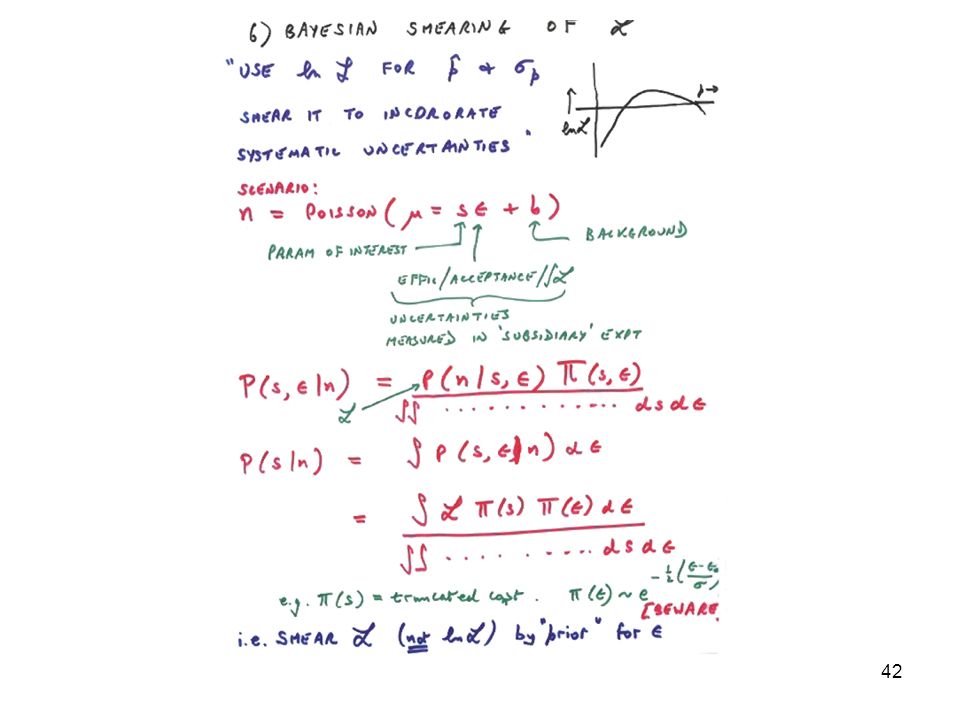 6) BAYESIAN SMEARING OF ℒ
"USE ln ℒ FOR p̂ & σp
SMEAR IT TO INCORORATE
SYSTEMATIC UNCERTAINTIES"
p →
↑
ln ℒ
SCENARIO:
n = POISSON (μ = sε + b)
PARAM OF INTEREST
BACKGROUND
EFFIC/ACCEPTANCE/∫ℒ
UNCERTAINTIES
MEASURED IN 'SUBSIDIARY' EXPT
P(s, ε|n) = P(n|s, ε) Π(s, ε)
ℒ
∫∫ ............ ds dε
P(s|n) = ∫ P(s, ε|n) dε
= ∫ ℒ π(s) π(ε) dε
∫∫ ............ ds dε
e.g. π(s) = truncated const. π(ε) ~ e^-½(ε-ε₀/σ)
[BEWARE
i.e. SMEAR ℒ (not ln ℒ) by "prior" for ε
42